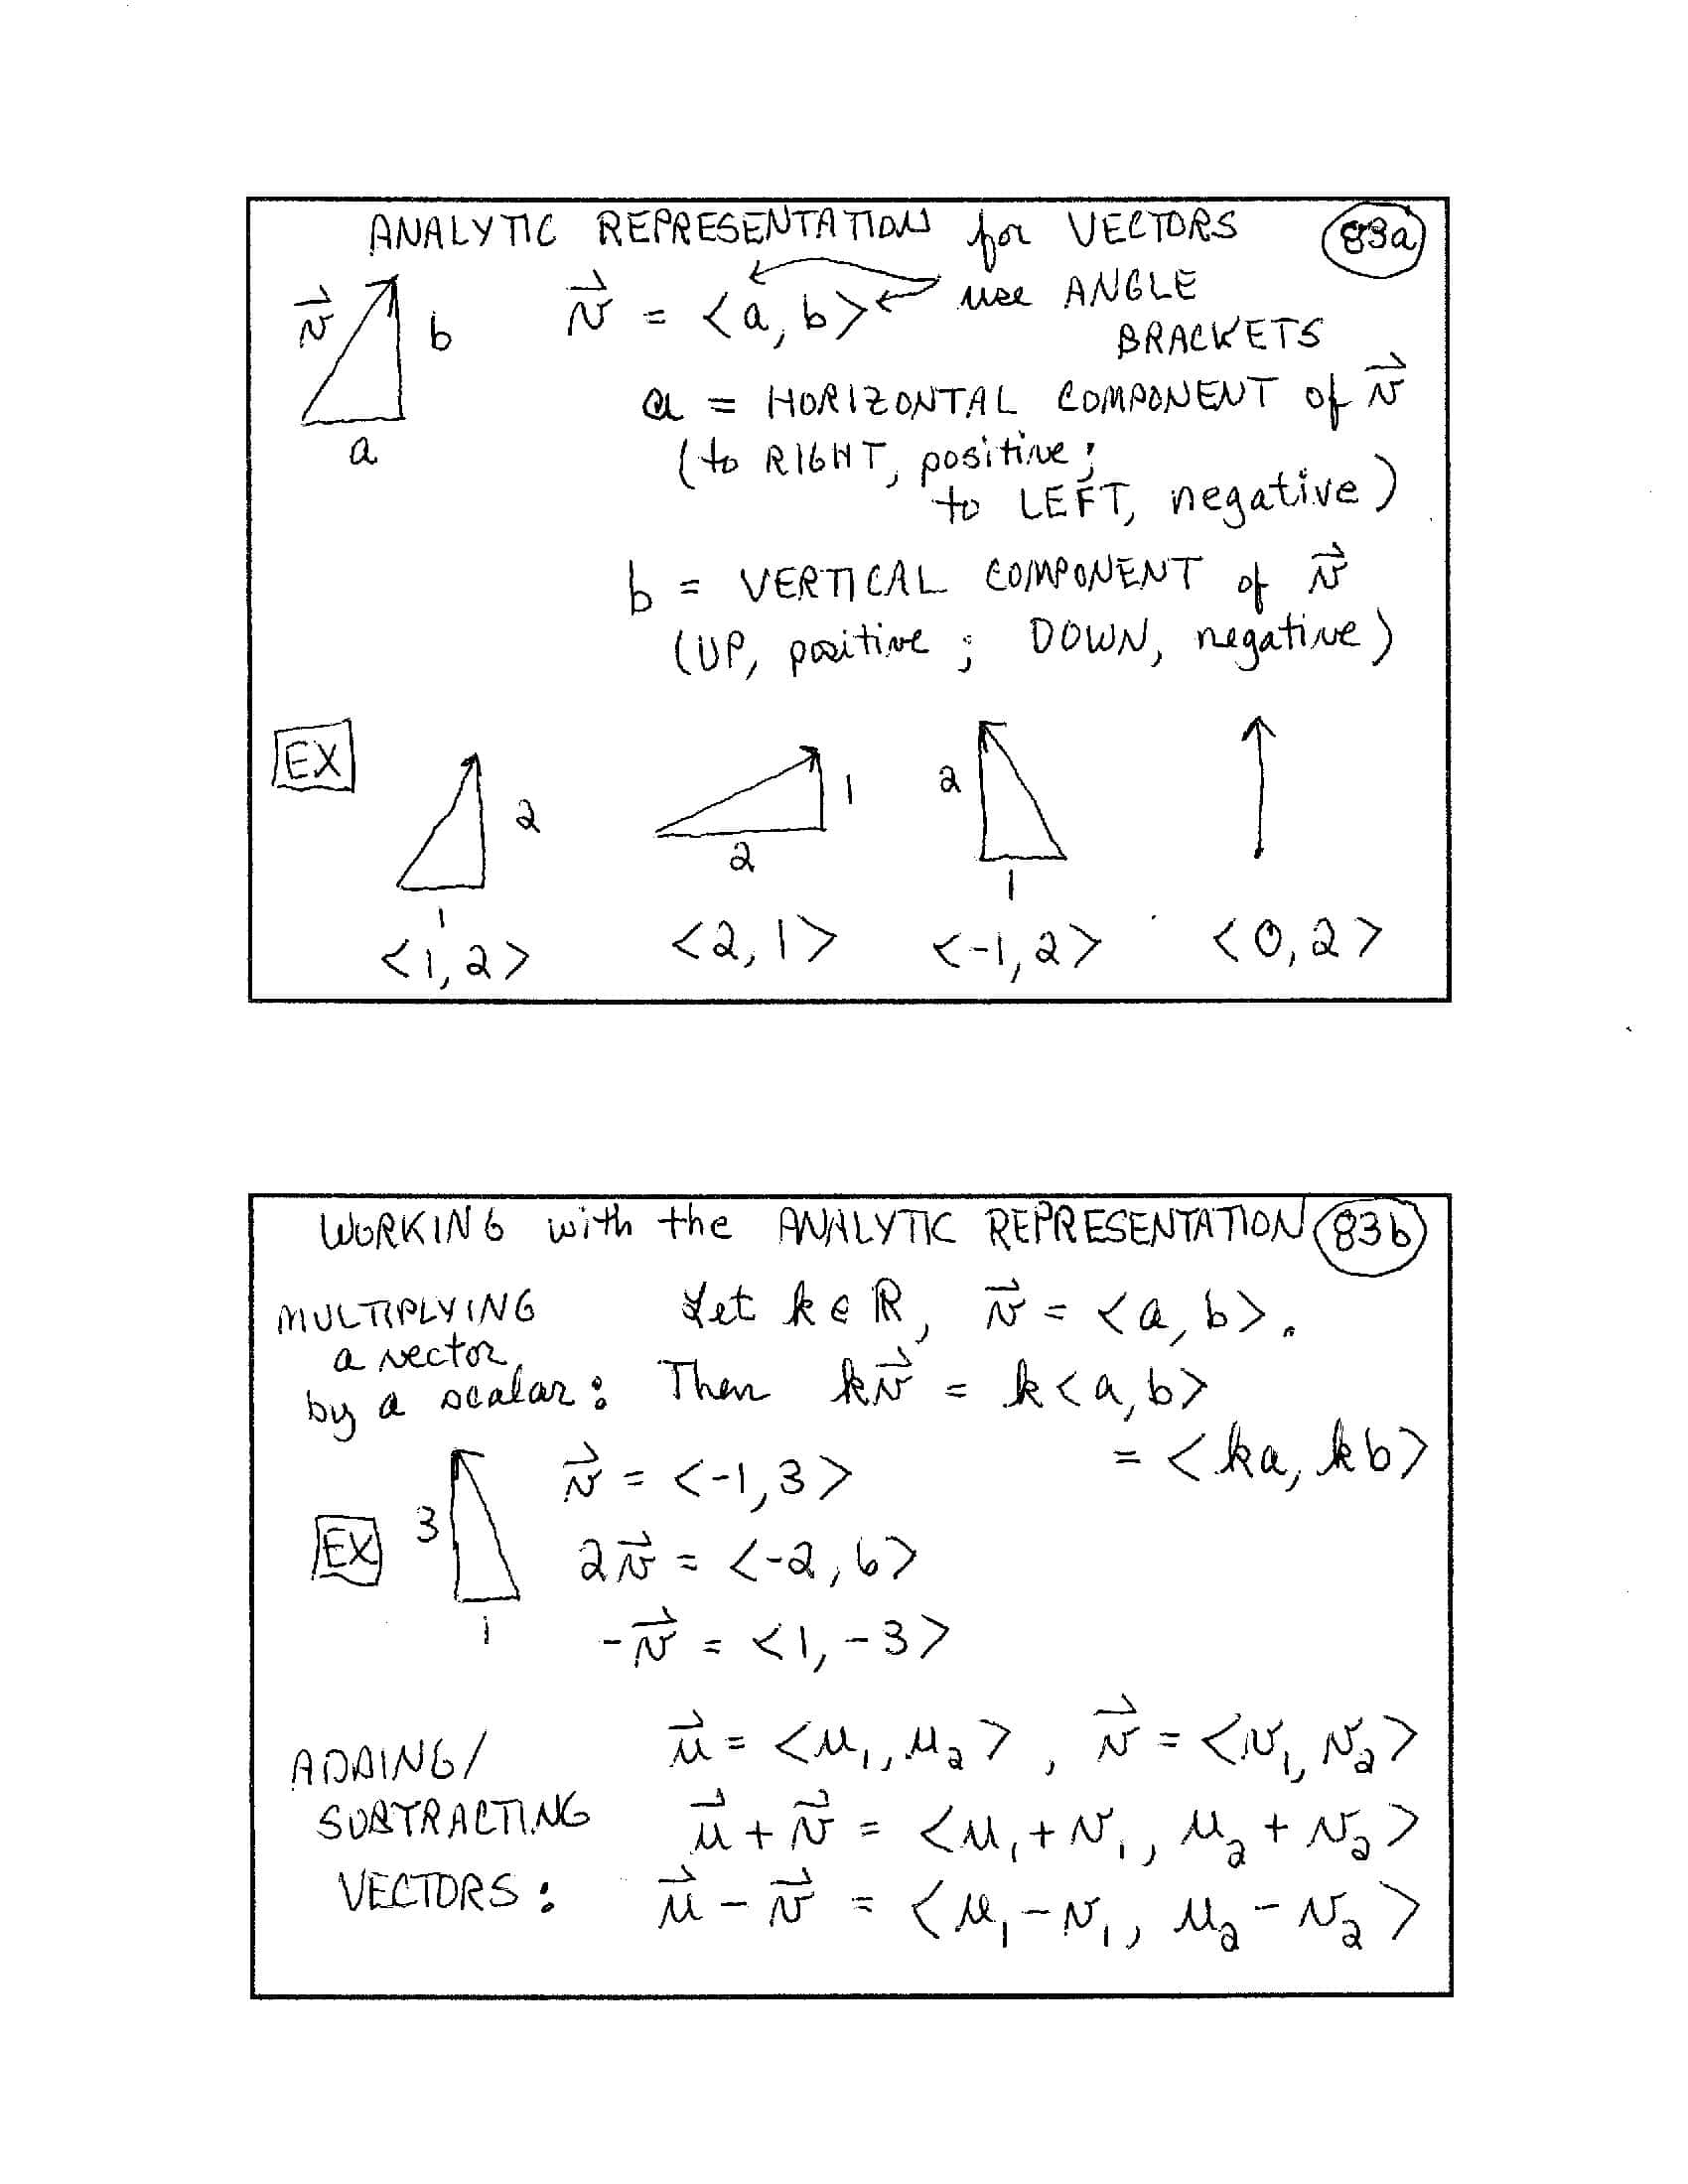 ANALYTIC REPRESENTATION for VECTORS 83a
v⃗ b v⃗ = <a, b> use ANGLE
BRACKETS
a
a = HORIZONTAL COMPONENT of v⃗
(to RIGHT, positive;
to LEFT, negative)
b = VERTICAL COMPONENT of v⃗
(UP, positive; DOWN, negative)
EX
2 1 2
1 2 1
<1, 2> <2, 1> <-1, 2> <0, 2>
WORKING with the ANALYTIC REPRESENTATION 83b
MULTIPLYING Let k ∈ ℝ, v⃗ = <a, b>.
a vector
by a scalar: Then kv⃗ = k<a, b>
= <ka, kb>
EX 3 1
v⃗ = <-1, 3>
2v⃗ = <-2, 6>
-v⃗ = <1, -3>
ADDING/ u⃗ = <u₁, u₂>, v⃗ = <v₁, v₂>
SUBTRACTING u⃗ + v⃗ = <u₁ + v₁, u₂ + v₂>
VECTORS: u⃗ - v⃗ = <u₁ - v₁, u₂ - v₂>